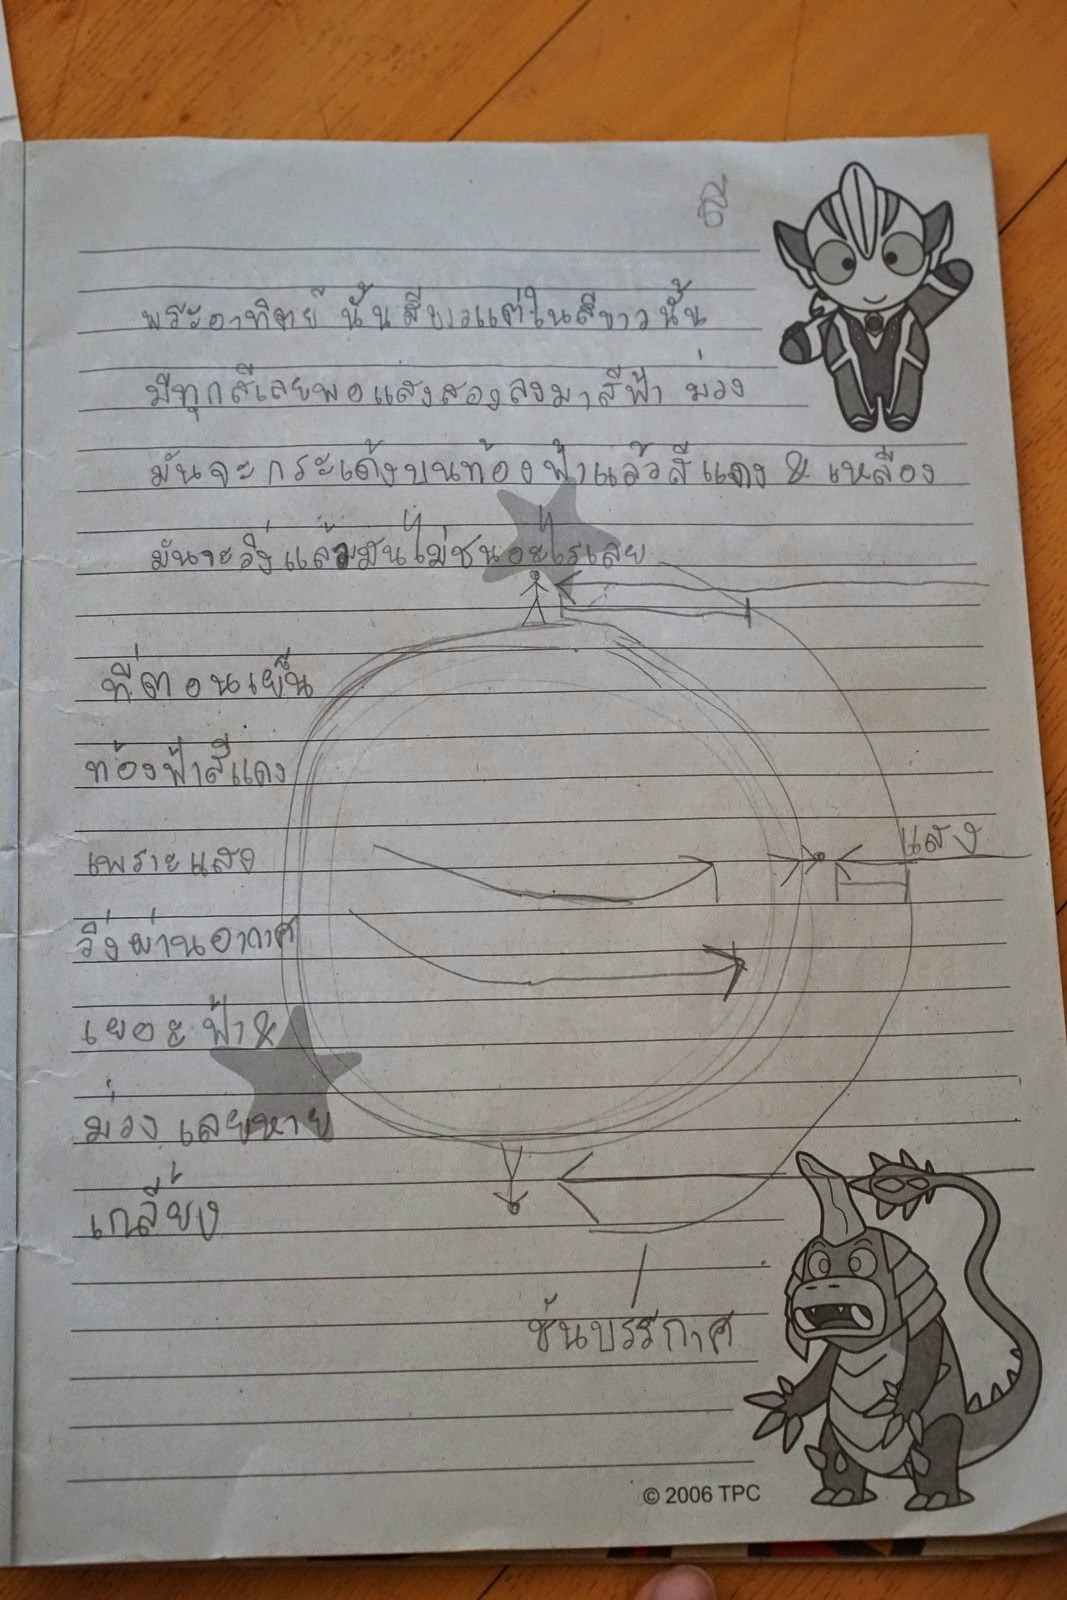 พระอาทิตย์ นั้นสีขาวแต่ในสีขาวนั้น
มีทุกสีเลยพอแสงสองลงมาสีฟ้า ม่วง
มันจะกระเด้งบนท้องฟ้าแล้วสีแดง & เหลือง
มันจะวิ่งแล้วมันไม่ชนอะไรเลย
ที่ตอนเย็น
ท้องฟ้าสีแดง
เพราะแสง
วิ่งผ่านอากาศ
เยอะ ฟ้า &
ม่วง เลยหาย
เกลี้ยง
แสง
ชั้นบรรกาศ
© 2006 TPC